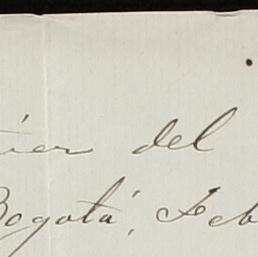 del
Bogotá, Feb